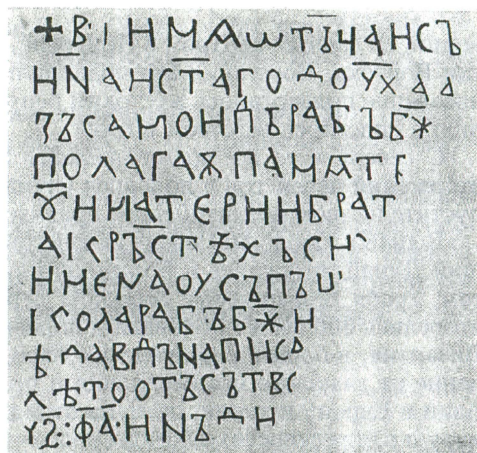 +В·ІИМѦѠТІЧАИСЪ
ИНАИСТАГОДОУХАА
ЗЪСАМОИЛЬРАБЪБЖ
ПОЛАГАѪПАМѦТЬ
ꙊИМАТЕРИИБРАТ
АІСРЪСТѢХЪСИ
ИМЕНАОУСЪПЪШ
ІСОЛАРАБЪБЖИ
ѢДАВДЪНАПИСА
ЛѢТООТЪСЪТВО
УꙀ:·ФА·ИНЪДИ